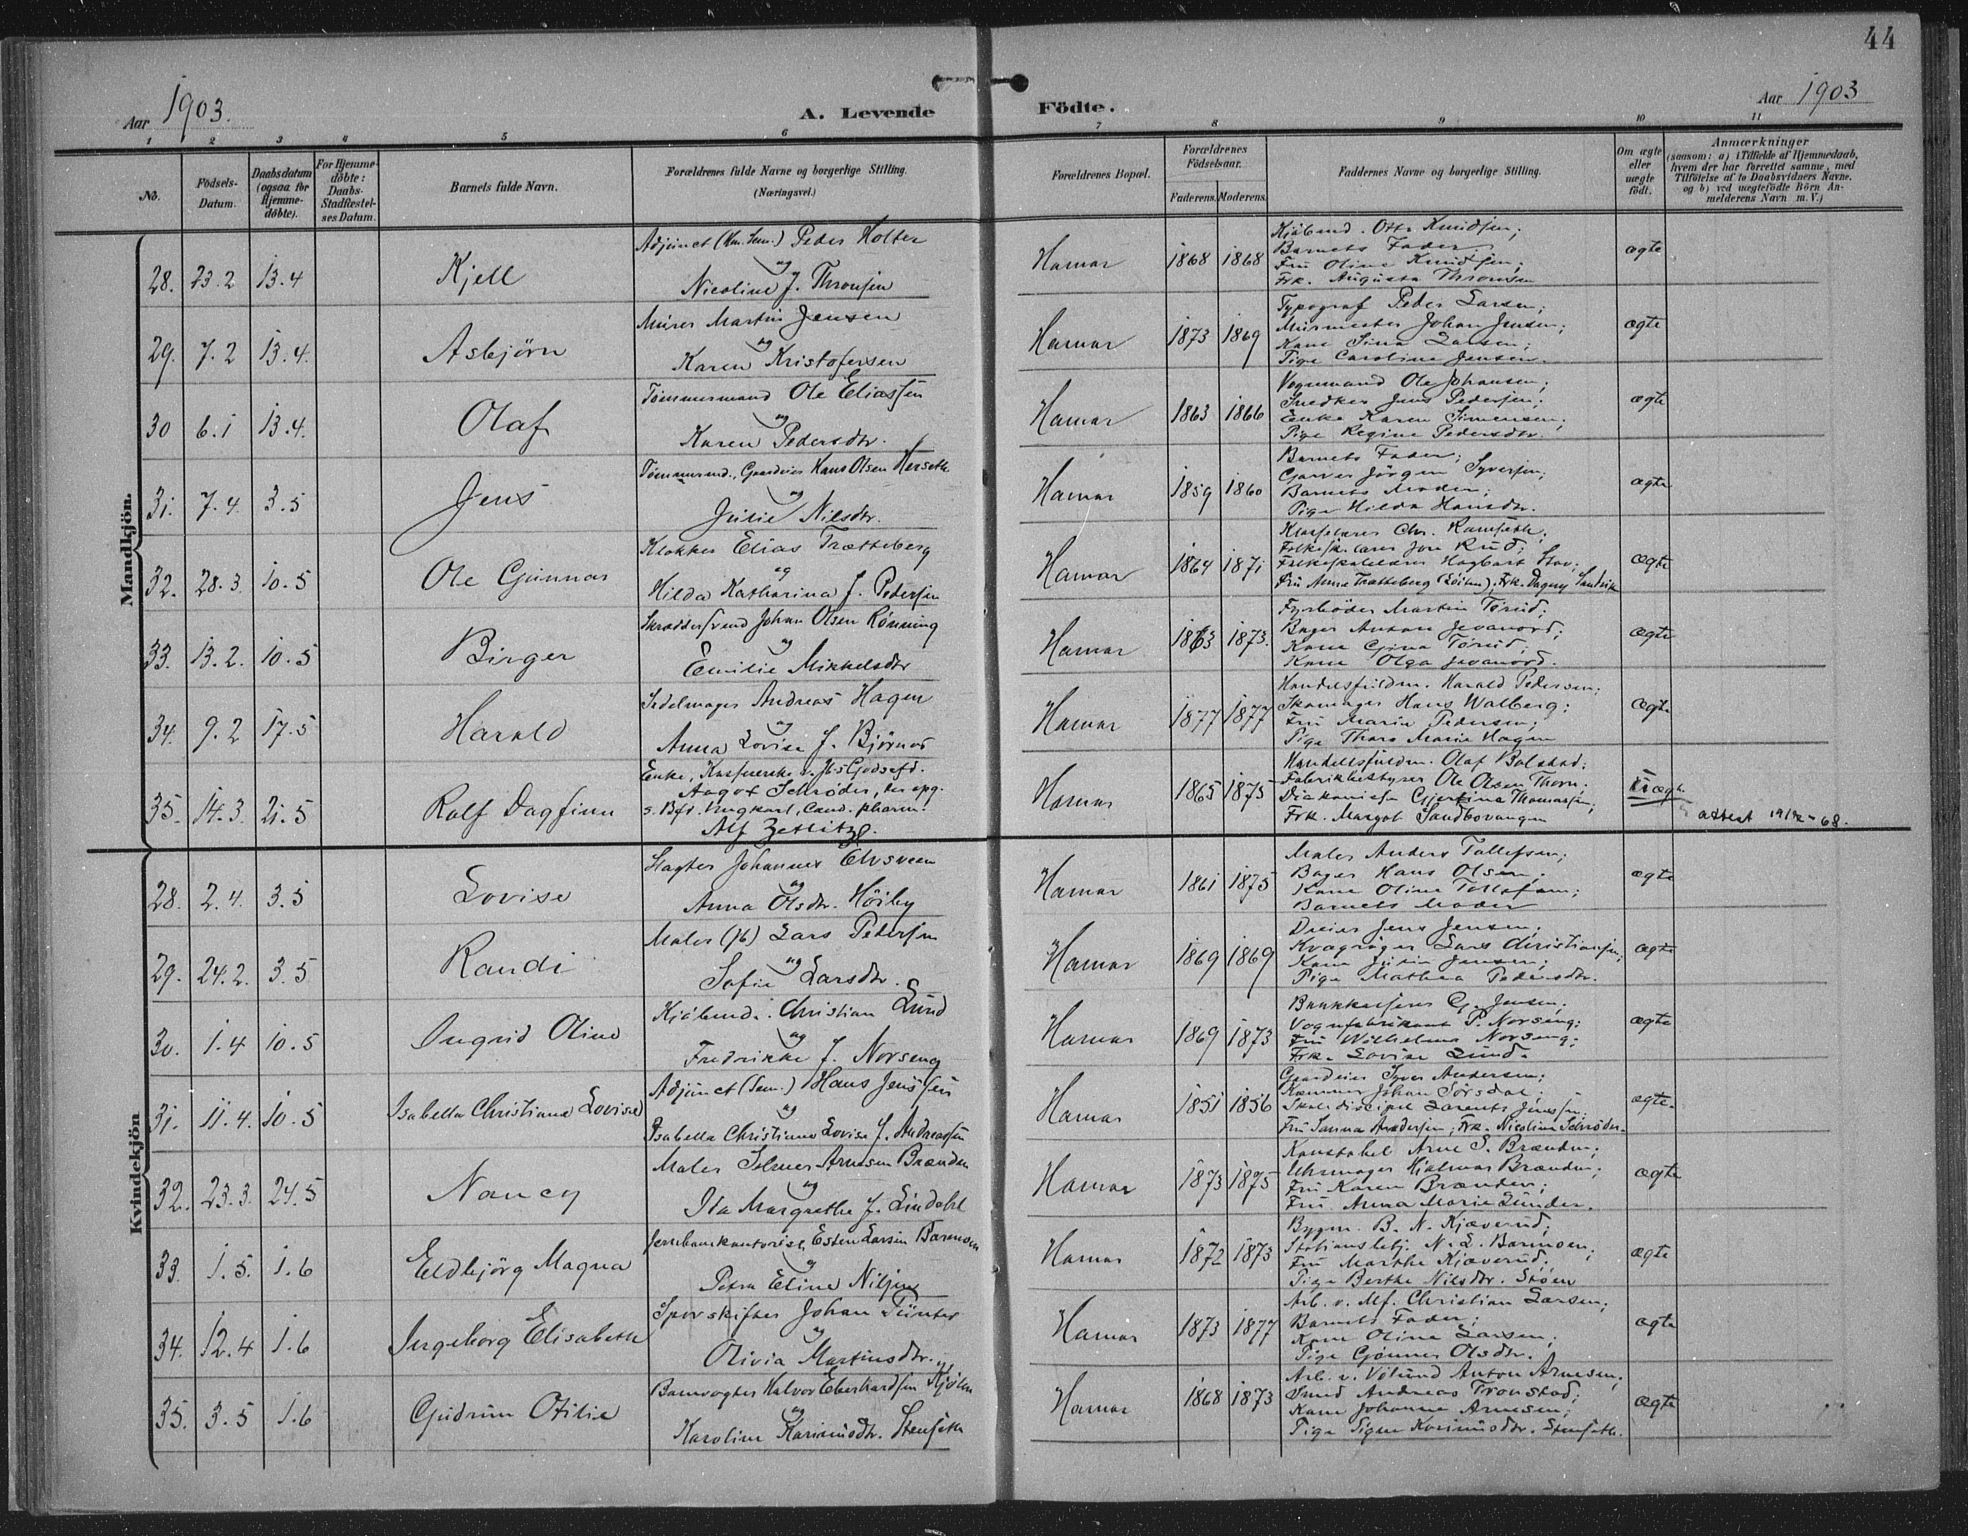 44
Aar 1903.
A. Levende Födte.
Aar 1903
1 2 3 4 5 6 7 8 9 10 11
No.
Födsels-Datum.
Daabsdatum (ogsaa for Hjemmedöbte).
For Hjemmedöbte: Daabs-Stadfæstelses Datum.
Barnets fulde Navn.
Forældrenes fulde Navne og borgerlige Stilling. (Næringsvei.)
Forældrenes Bopæl.
Forældrenes Födselsaar.
Faderens. Moderens.
Faddernes Navne og borgerlige Stilling.
Om ægte eller uægte födt.
Anmærkninger
(saasom: a) i Tilfælde af Hjemmedaab, hvem der har forrettet samme, med Tilföielse af to Daabsvidners Navne. og b) ved uægtefödte Börn Anmelderens Navn m. V.)
Mandkjön.
28. 23.2 13.4 Kjell
Adjunct Peder Holter
og
Nicoline f. Thronsen
Hamar 1868 1868
Kjöbmd. Otto Knudsen;
Barnets Fader;
Fru Oline Knudsen;
Frk. Augusta Thronsen
ægte
29. 7.2 13.4. Asbjörn
Murer Martin Jensen
og
Karen Kristofersen
Hamar 1873 1869
Typograf Peder Larsen;
Murmester Johan Jensen;
Kone Sina Larsen;
Pige Caroline Jensen.
ægte
30 6.1 13.4. Olaf
Tömmermand Ole Eliassen
og
Karen Pedersdtr.
Hamar 1863 1866
Vognmand Ole Johansen;
Snedker Jens Pedersen;
Enke Karen Simensen;
Pige Regine Pedersdtr.
ægte
31. 7.4. 3.5 Jens
Tömmermd., Gaardeier Hans Olsen Herseth
og
Julie Nilsdtr.
Hamar 1859 1860
Barnets Fader;
Garver Jörgen Syversen;
Barnets Moder;
Pige Hilda Hansdtr.
ægte
32. 28.3. 10.5 Ole Gunnar
Klokker Elias Trætteberg
og
Hilda Katharina f. Pedersen
Hamar 1864 1871
Klasselærer Chr. Ramseth;
Folkeskolelærer Hagbart Stav;
Fru Anne Trætteberg (Löiten); Frk. Dagny Sandvik
ægte
33. 13.2. 10.5 Birger
Skræddersvend Johan Olsen Rönning
og
Emilie Mikkelsdtr
Hamar 1863 1873.
Fyrböder Martin Törud;
Bager Anton
Kone Gina Törud;
Kone Olga
ægte
34. 9.2 17.5 Harald
Sadelmager Andreas Hagen
og
Anna Lovise f. Björnes
Hamar 1877 1877
Handelsfuldm. Harald Pedersen;
Skomager Hans Walberg;
Fru Marie Pedersen;
Pige Thora Marie Hagen
ægte
35. 14.3. 21.5 Ralf Dagfinn
Enke,
Aagot Schröder, der opg.
s. Bfd. Ungkarl, Cand. pharm.
Alf Zetlitz.
Hamar 1865 1875
Handelsfuldm. Olaf Bolstad;
Fabrikbestyrer Ole Olsen Thorn;
Diakonisse Gjertine Thomassen;
Frk. Margot Sandbovangen
Uægte
attest 19/12-68.
Kvindekjön
28. 2.4. 3.5 Lovise
Slagter Johannes Elvsveen
og
Anna Olsdtr. Höiby
Hamar 1861 1875
Maler Anders Tollefsen;
Bager Hans Olsen;
Kone Oline Tollefsen;
Barnets Moder
ægte
29. 24.2. 3.5 Randi
Maler Lars Pedersen
og
Sofie Larsdtr.
Hamar 1869 1869
Dreier Jens Jensen;
Lars Christiansen;
Kone Julie Jensen;
Pige Mathea Pedersdtr.
ægte
30. 1.4 10.5 Ingrid Oline
Kjöbmd. Christian Lund
og
Fredrikke f. Norseng
Hamar 1869 1873
Bankkasserer G. Jensen;
Vognfabrikant P. Norseng;
Fru Wilhelmine Norseng;
Frk. Lovise Lund.
ægte
31. 11.4. 10.5 Isabella Christiane Lovise
Adjunct (Sem.) Hans Jenssen
og
Isabella Christiane Lovise f. Andreassen
Hamar 1851 1856
Gaardeier Syver Andersen;
Johan Sörsdal;
Skoledisciple Laurents Jenssen;
Fru Sanna Andersen; Frk. Nicoline Schröder.
ægte.
32. 23.3. 24.5 Nancy
Maler Selmer Arnesen Brænden
og
Ida Margrethe f. Lindahl
Hamar 1873 1875
Konstabel Arne S. Brænden;
Uhrmager Hjalmar Brænden;
Fru Karen Brænden;
Fru Anna Marie Lunder.
ægte
33. 1.5. 1.6 Eldbjörg Magna
Jernbanekontorist Esten Larsen Barmoen
og
Petra Eline Nilsen
Hamar 1872 1873
Bygm. B. N. Kjæverud;
Stationsbetj. N. L. Barmoen;
Fru Marthe Kjæverud;
Pige Berthe Nilsdtr. Stöen
ægte
34. 12.4 1.6 Ingeborg Elisabeth
Sporskifter Johan Günter
og
Olivia Martinsdtr.
Hamar 1873 1877
Arb. v. Mf. Christian Larsen;
Barnets Fader;
Kone Oline Larsen;
Pige Gunner Olsdtr.
ægte
35. 3.5 1.6 Gudrun Otilie
Banevogter Halvor Eberhardsen Kjölen
og
Karoline Karinusdtr. Stenseth
Hamar 1868 1873
Arb. v. Völund Anton Arnesen;
Smed Andreas Tronstad;
Kone Johanne Arnesen;
Pige Signe Karinusdtr. Stenseth.
ægte